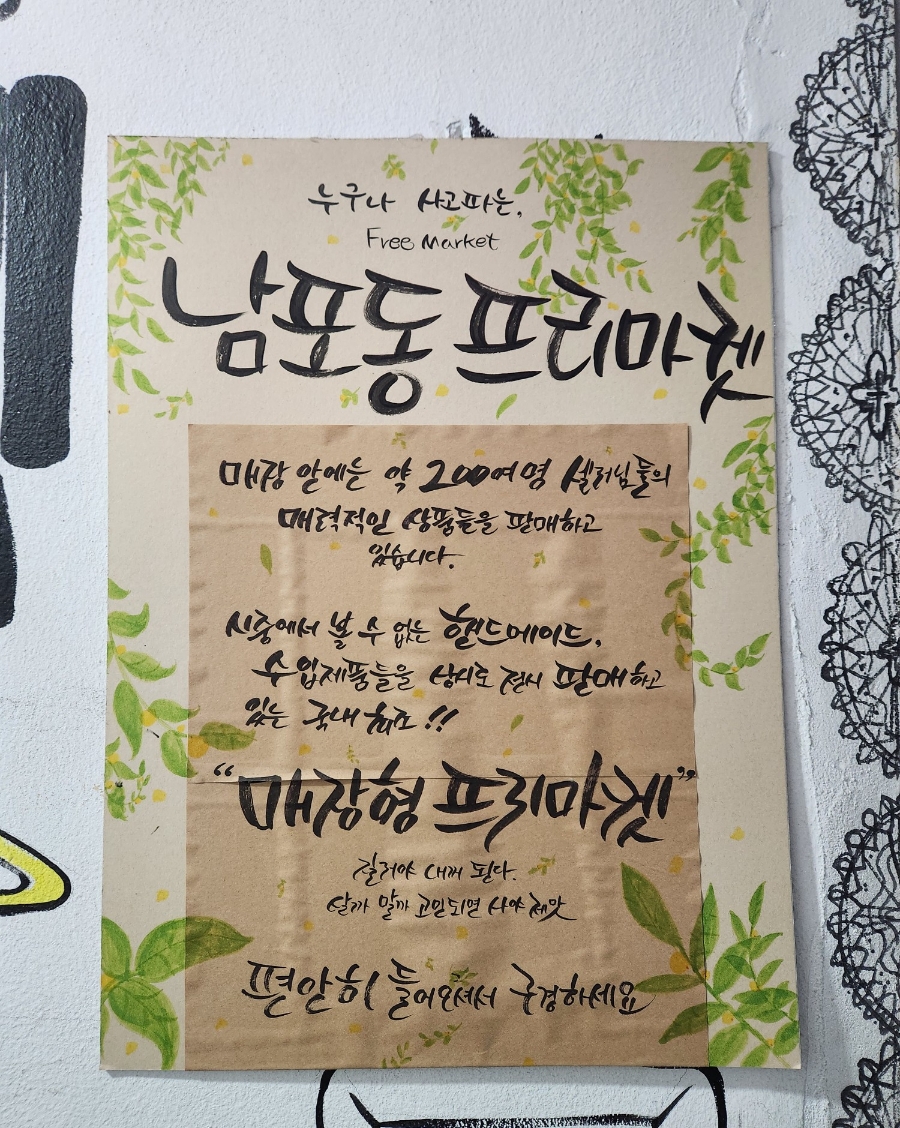 누구나 사고파는,
Free Market
남포동 프리마켓
매장 앞에는 약 200여명 셀러님들의
매력적인 상품들을 판매하고
있습니다.
시중에서 볼 수 없는 핸드메이드,
수입제품들을 상시로 전시 판매하고
있는 국내 최초 !!
"매장형 프리마켓"
질러야 내꺼 된다.
살까 말까 고민되면 사야 제맛
편안히 들어오셔서 구경하세요